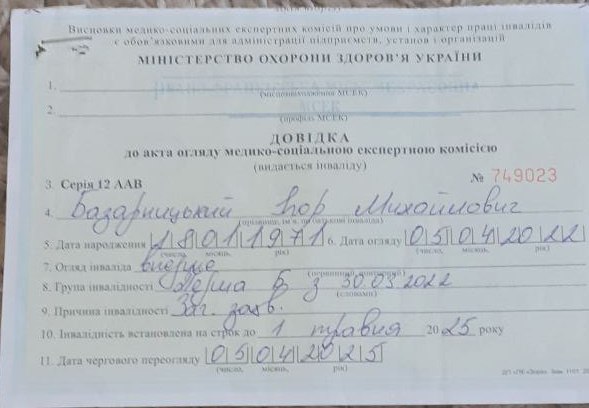 Висновки медико-соціальних експертних комісій про умови і характер праці інвалідів
є обов'язковими для адміністрації підприємств, установ і організацій
МІНІСТЕРСТВО ОХОРОНИ ЗДОРОВ'Я УКРАЇНИ
1.
(місцезнаходження МСЕК)
МСЕК
2.
(профіль МСЕК)
ДОВІДКА
до акта огляду медико-соціальною експертною комісією
(видається інваліду)
3. Серія 12 ААВ № 749023
4. Базарницький Ігор Михайлович
(прізвище, ім'я, по батькові інваліда)
5. Дата народження 28011971 6. Дата огляду 05042022
(число, місяць, рік) (число, місяць, рік)
7. Огляд інваліда вперше
(первинний, повторний)
8. Група інвалідності Перша Б з 30.03.2022
(словами)
9. Причина інвалідності Заг. захв.
10. Інвалідність встановлена на строк до 1 травня 2025 року
11. Дата чергового переогляду 05042025
(число, місяць, рік)